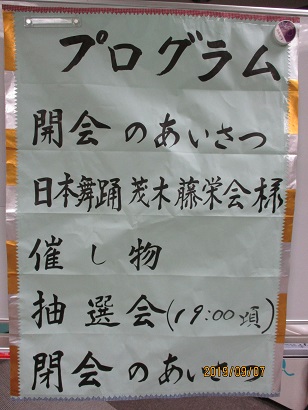 プログラム
開会のあいさつ
日本舞踊 茂木藤栄会様
催し物
抽選会(19:00頃)
閉会のあいさつ
2019/09/07